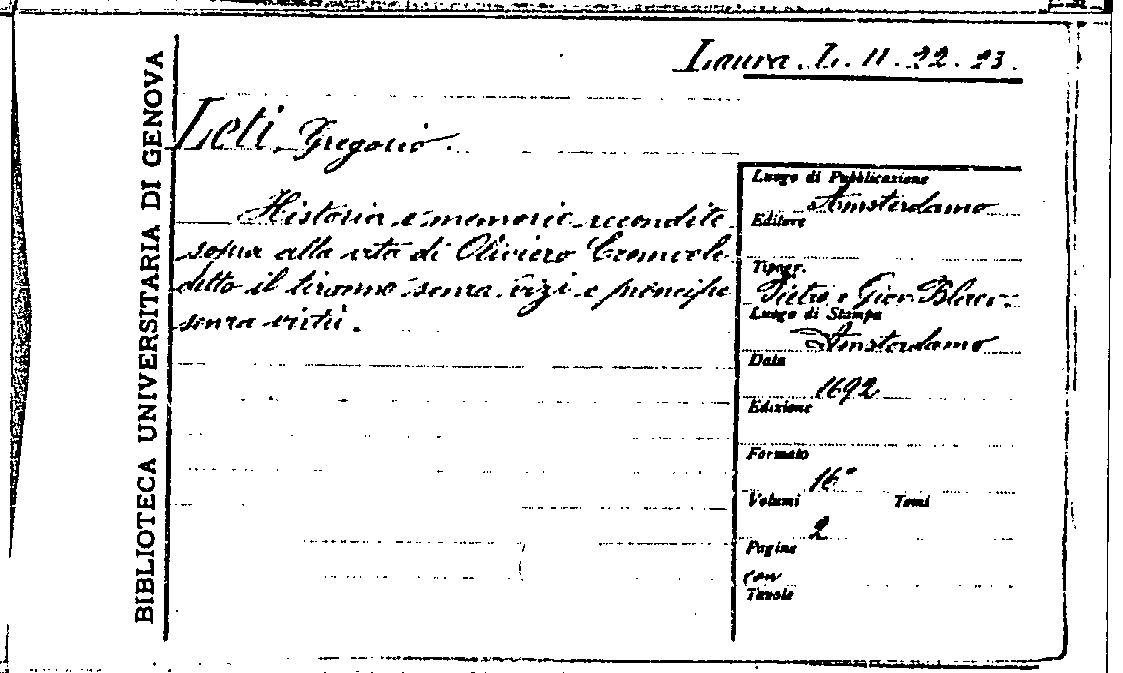 BIBLIOTECA UNIVERSITARIA DI GENOVA
Laura. L. 11. 22. 23.
Leti, Gregorio.
Historia e memorie recondite
sopra alla vita di Oliviero Cromvele
detto il tiranno senza vizi e principe
senza virtù.
Luogo di Pubblicazione
Amsterdamo
Editore
Tipogr.
Pietro e Giov. Blaev.
Luogo di Stampa
Amsterdamo
Data
1692
Edizione
Formato
16°
Volumi Tomi
2
Pagine
con
Tavole